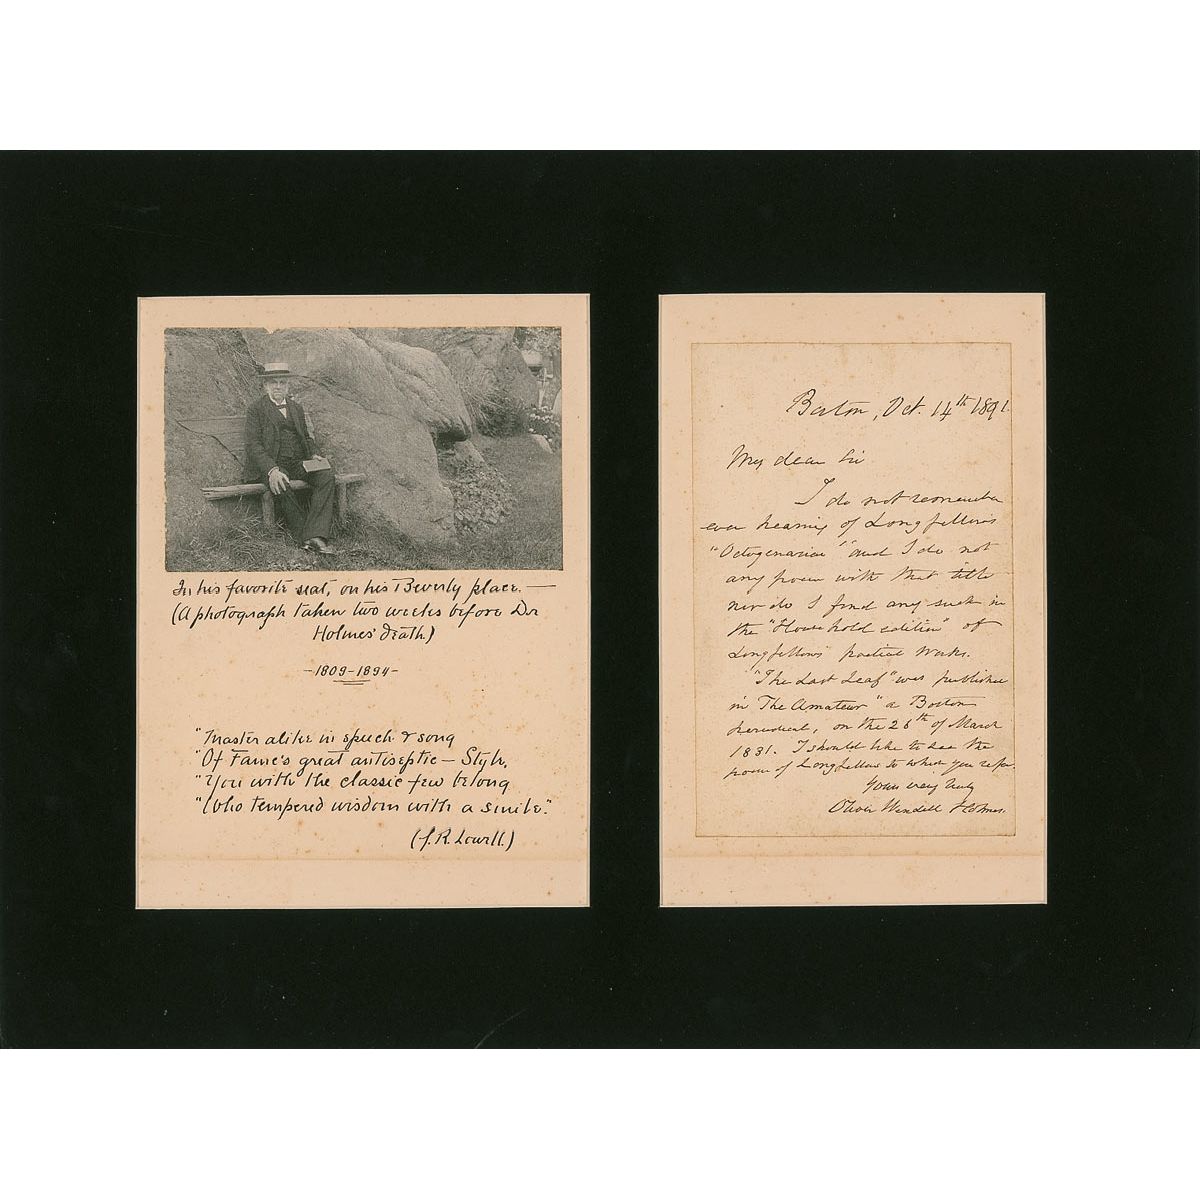 In his favorite seat, on his Beverly place. —
(A photograph taken two weeks before Dr
Holmes' death.)
- 1809 - 1894 -
"Master alike in speech & song
"Of Fame's great antiseptic — Style,
"You with the classic few belong
"Who tempered wisdom with a smile".
(J. R. Lowell.)
Boston, Oct. 14th 1891.
My dear Sir
I do not remember
ever hearing of Longfellow's
"Octogenarian" and I do not
any poem with that title
nor do I find any such in
the "Household edition" of
Longfellow's poetical works.
"The Last Leaf" was published
in The Amateur" a Boston
periodical, on the 26th of March
1831. I should like to see the
poem of Longfellow to which you refer.
Yours very truly
Oliver Wendell Holmes.